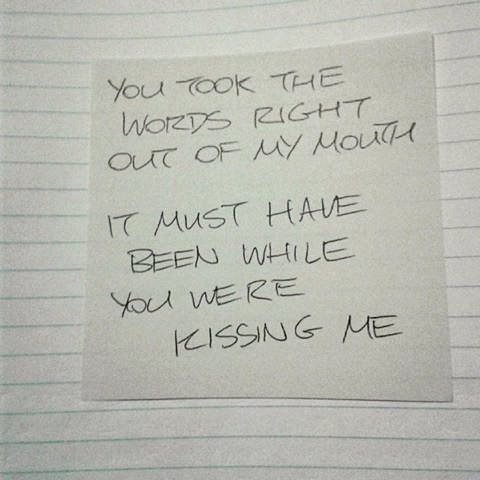 YOU TOOK THE
WORDS RIGHT
OUT OF MY MOUTH
IT MUST HAVE
BEEN WHILE
YOU WERE
KISSING ME